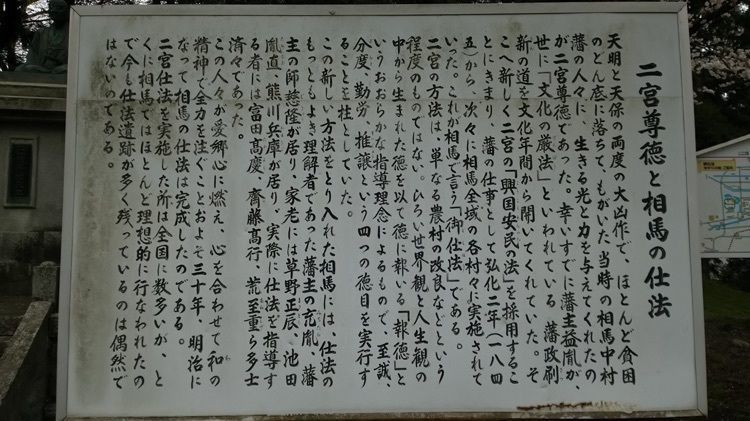 二宮尊徳と相馬の仕法
天明と天保の両度の大凶作で、ほとんど貧困
のどん底に落ちて、もがいた当時の相馬中村
藩の人々に、生きる光と力を与えてくれたの
が二宮尊徳であった。幸いすでに藩主益胤が、
世に「文化の厳法」といわれている　藩政刷
新の道を文化年間から開いてくれていた。そ
こへ新しく二宮の「興国安民の法」を採用するこ
とにきまり、藩の仕事として弘化二年（一八四
五から、次々に相馬全域の各村々に実施されて
いった。これが相馬で言う「御仕法」である。
二宮の方法は、単なる農村の改良などという
程度のものではない。ひろい世界観と人生観の
中から生まれた徳を以て徳に報いる「報徳」と
いうおおらかな指導理念によるもので、至誠、
分度、勤労、推譲という四つの徳目を実行す
ることを柱としていた。
この新しい方法をとり入れた相馬には、仕法の
もっともよき理解者であった藩主の充胤、藩
主の師慈隆が居り、家老には草野正辰、池田
胤直、熊川兵庫が居り、実際に仕法を指導す
る者には富田高慶、齊藤高行、荒至重ら多士
済々であった。
この人々が愛郷心に燃え、心を合わせて和の
精神で全力を注ぐことおよそ三十年、明治に
なって相馬の仕法は完成したのである。
二宮仕法を実施した所は全国に数多いが、と
くに相馬ではほとんど理想的に行なわれたの
で今も仕法遺跡が多く残っているのは偶然で
はないのである。